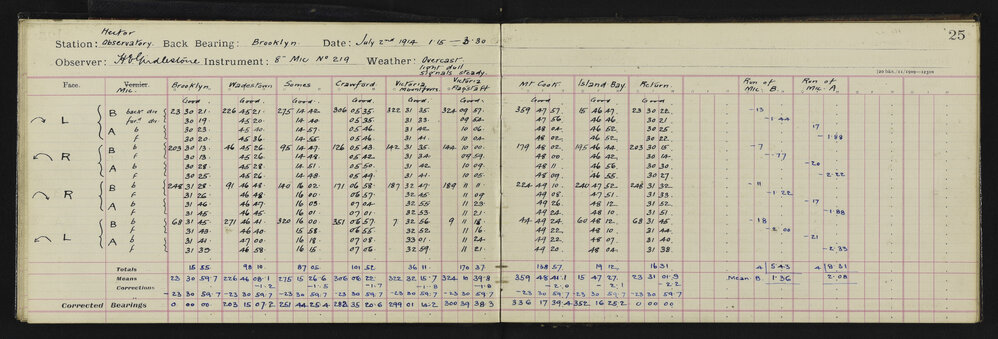 Hector
Station: Observatory. Back Bearing: Brooklyn. Date: July 2nd 1914 1·15 – 3·30
25
Observer: H E Girdlestone Instrument: 8" Mic No 219 Weather: Overcast
light dull
signals steady.
Face. Vernier Mic. Brooklyn Wadestown Somes Crawford Victoria Victoria Flagstaff Mt Cook Island Bay. Return. Run of Mic. B. Run of Mic. A.
Good. Good. Good. Good. Good. Good. Good Good. Good.
L B 23 30 21 226 45 21 275 14 42 306 05 35 322 31 35 324 09 57 359 47 57 15 46 47 23 30 22
30 19 45 20 14 40 05 35 31 33 09 54 47 56 46 46 30 21
A b 30 23 45 40 14 57 05 46 31 42 10 06 48 04 46 52 30 25
f 30 20 45 36 14 55 05 46 31 41 10 04 48 02 46 52 30 22
R B b 203 30 13 46 45 26 95 14 47 126 05 43 142 31 35 144 10 00 179 48 02 195 46 44 203 30 15
f 30 13 45 26 14 48 05 42 31 34 09 59 48 00 46 42 30 14
A b 30 28 45 28 14 51 05 50 31 42 10 09 48 11 46 56 30 30
f 30 25 45 26 14 48 05 49 31 41 10 05 48 09 46 55 30 27
R B b 248 31 28 91 46 48 140 16 02 171 06 58 187 32 47 189 11 11 224 49 10 240 47 52 248 31 32
f 31 26 46 48 16 00 06 57 32 45 11 09 49 08 47 51 31 33
A b 31 46 46 47 16 03 07 04 32 55 11 23 49 26 48 12 31 52
f 31 45 46 45 16 01 07 01 32 53 11 21 49 24 48 10 31 51
L B b 68 31 45 271 46 41 320 16 00 351 06 57 7 32 56 9 11 18 44 49 24 60 48 12 68 31 45
f 31 43 46 40 15 58 06 55 32 52 11 16 49 22 48 10 31 44
A b 31 41 47 00 16 18 07 08 33 01 11 24 49 22 48 07 31 40
f 31 39 46 58 16 15 07 06 32 59 11 21 49 20 48 04 31 38
Totals 15 55 98 10 87 05 101 52 36 11 170 37 168 57 19 12 16 31 4 5·43 4 8·31
Means 23 30 59·7 226 46 08·1 275 15 26·6 306 06 22 322 32 15·7 324 10 39·8 359 48 41·1 15 47 27 23 31 01·9 Mean B 1·36 2·08
Corrections -1·2 -1·5 -1·7 -1·8 -1·8 -2·0 -2·1 -2·2
-23 30 59·7 -23 30 59·7 -23 30 59·7 -23 30 59·7 -23 30 59·7 -23 30 59·7 -23 30 59·7 -23 30 59·7 -23 30 59·7
Corrected Bearings 0 00 00 203 15 07·2 251 44 25·4 282 35 20·6 299 01 14·2 300 39 38·3 336 17 39·4 352 16 25·2 0 00 00